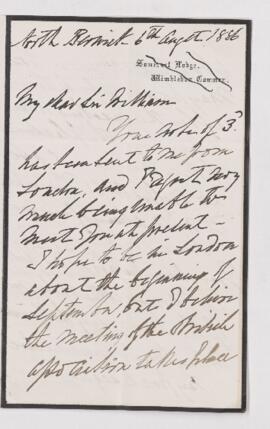 North Berwick 6th Augt 1886
Somerset Lodge,
Wimbledon Common.
My dear Sir William
Your note of 3d
has been sent to me from
London, and I regret very
much being unable to
meet you at present –
I hope to be in London
about the beginning of
September, but I believe
the meeting of the British
association takes place